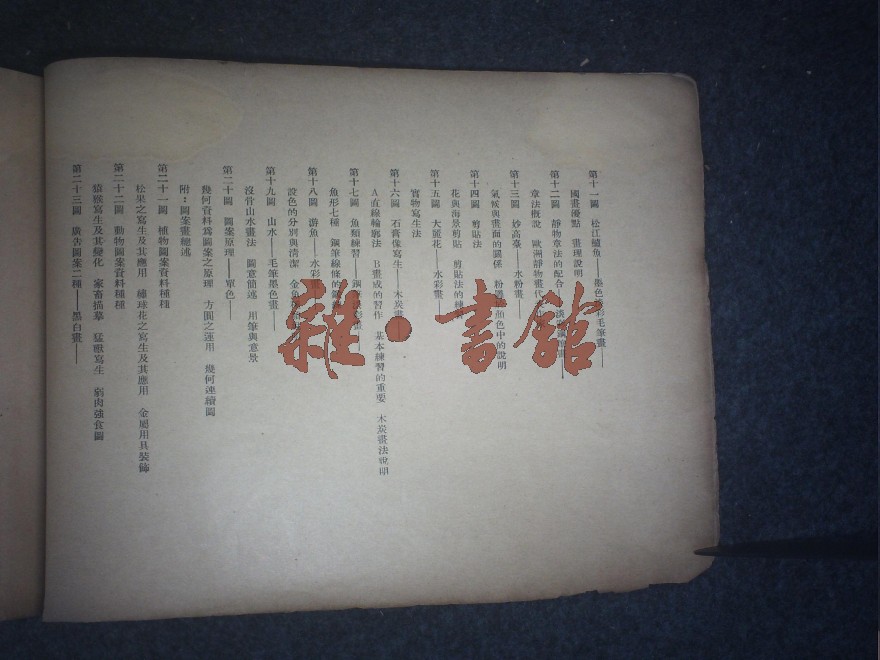 第十一圖　松江鱸魚——墨色　彩毛筆畫——
國畫優點　畫理說明
第十二圖　靜物章法的配合　淡　畫——
章法概說　歐洲靜物畫代
第十三圖　妙高臺——水粉畫——
氣候與畫面的關係　粉　顏色中的說明
第十四圖　剪貼法
花與海景剪貼　剪貼法的練
第十五圖　大麗花——水彩畫——
實物寫生法
第十六圖　石膏像寫生——木炭畫
A直線輪廓法　B畫成的習作　基本練習的重要　木炭畫法說明
第十七圖　魚類練習——鋼筆淡彩畫
魚形七種　鋼筆線條的
第十八圖　游魚——水彩畫
設色的分別與清潔　金魚
第十九圖　山水——毛筆墨色畫——
沒骨山水畫法　圖意簡述　用筆與意景
第二十圖　圖案原理——單色——
幾何資料爲圖案之原理　方圓之運用　幾何連續圖
附：圖案畫總述
第二十一圖　植物圖案資料種種
松果之寫生及其應用　繡球花之寫生及其應用　金屬用具裝飾
第二十二圖　動物圖案資料種種
猿猴寫生及其變化　家畜描摹　猛獸寫生　弱肉強食圖
第二十三圖　廣告圖案二種——黑白畫——
雜·書館